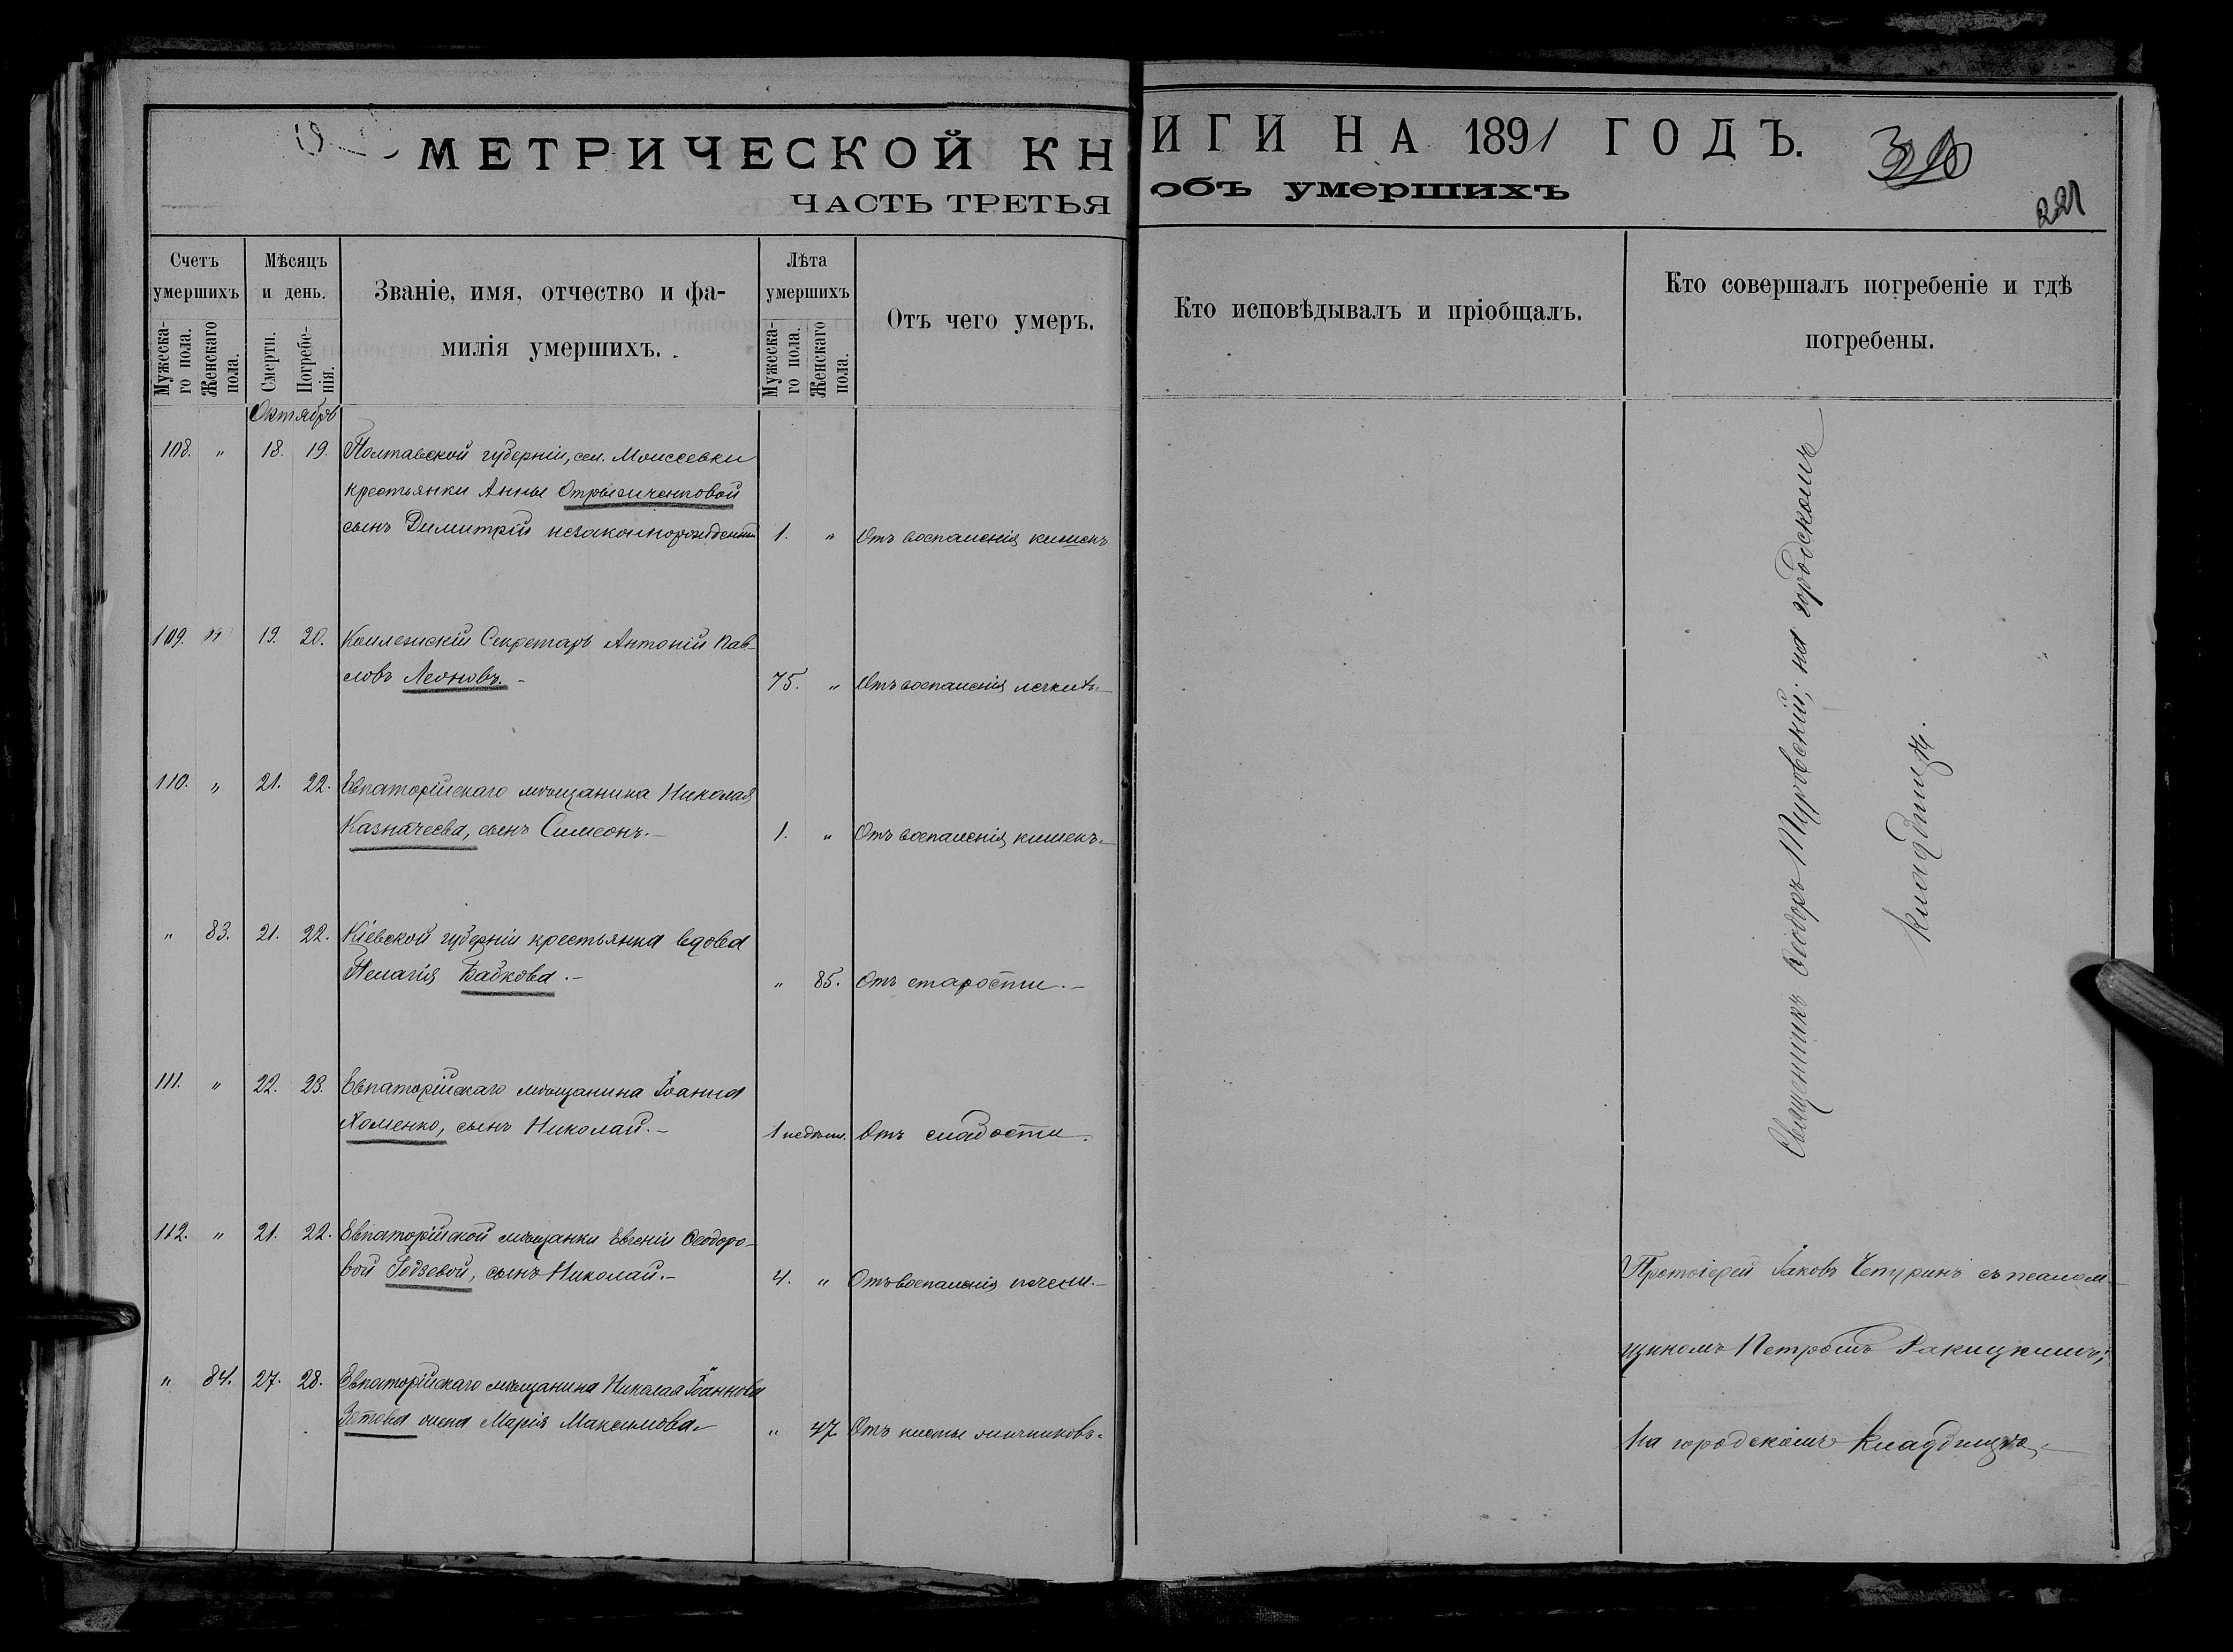 МЕТРИЧЕСКОЙ КНИГИ НА 1891 ГОДЪ.
221
ЧАСТЬ ТРЕТЬЯ объ умершихъ
Счетъ умершихъ
Мѣсяцъ и день.
Званіе, имя, отчество и фа-
милія умершихъ.
Лѣта умершихъ
Отъ чего умеръ.
Кто исповѣдывалъ и пріобщалъ.
Кто совершалъ погребеніе и гдѣ
погребены.
Мужеска-го пола.
Женскаго пола.
Смерти.
Погребе-нія.
Мужеска-го пола.
Женскаго пола.
Октябрь
108. " 18. 19. Полтавской губерніи, сел. Моисеевки
крестьянки Анны
сынъ Димитрій незаконнорожденный 1. " Отъ воспаленія кишекъ
109. " 19. 20. Коллежскій Секретарь Антоній Пав-
ловъ Леоновъ. - 75. " Отъ воспаленія легкихъ.-
110. " 21. 22. Евпаторійскаго мѣщанина Николая
Казначеева, сынъ Симеонъ.- 1. " Отъ воспаленія кишекъ.-
" 83. 21. 22. Кіевской губерніи крестьянка вдова
Пелагія Бабкова.- " 85. Отъ старости.-
111. " 22. 23. Евпаторійскаго мѣщанина Іоанна
Хоменко, сынъ Николай.- 1 недѣли. Отъ слабости.
Священникъ Ѳеодоръ Туровскій; на городскомъ
кладбищѣ.
112. " 21. 22. Евпаторійской мѣщанки Евгеніи Ѳеодоро-
вой сынъ Николай.- 4. " Отъ воспаленія печени.-
" 84. 27. 28. Евпаторійскаго мѣщанина Николая Іоаннова
Зотова жена Марія Максимова.- " 47. Отъ кисты яичниковъ.
Протоіерей Іаковъ Чепуринъ съ псалом-
щикомъ Петромъ Ракицкимъ;
на городскомъ кладбищѣ.-